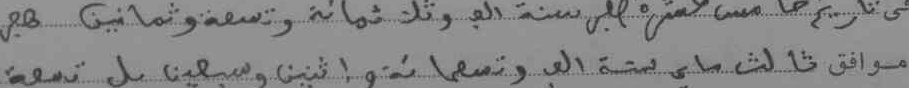 في تاريخ خامس عشرة سنة الف وثلاثمائة وتسعة وثمانين هجر
موافق ثالث ماي سنة الف وتسعمائة واثنين وسبعين بل تسعة